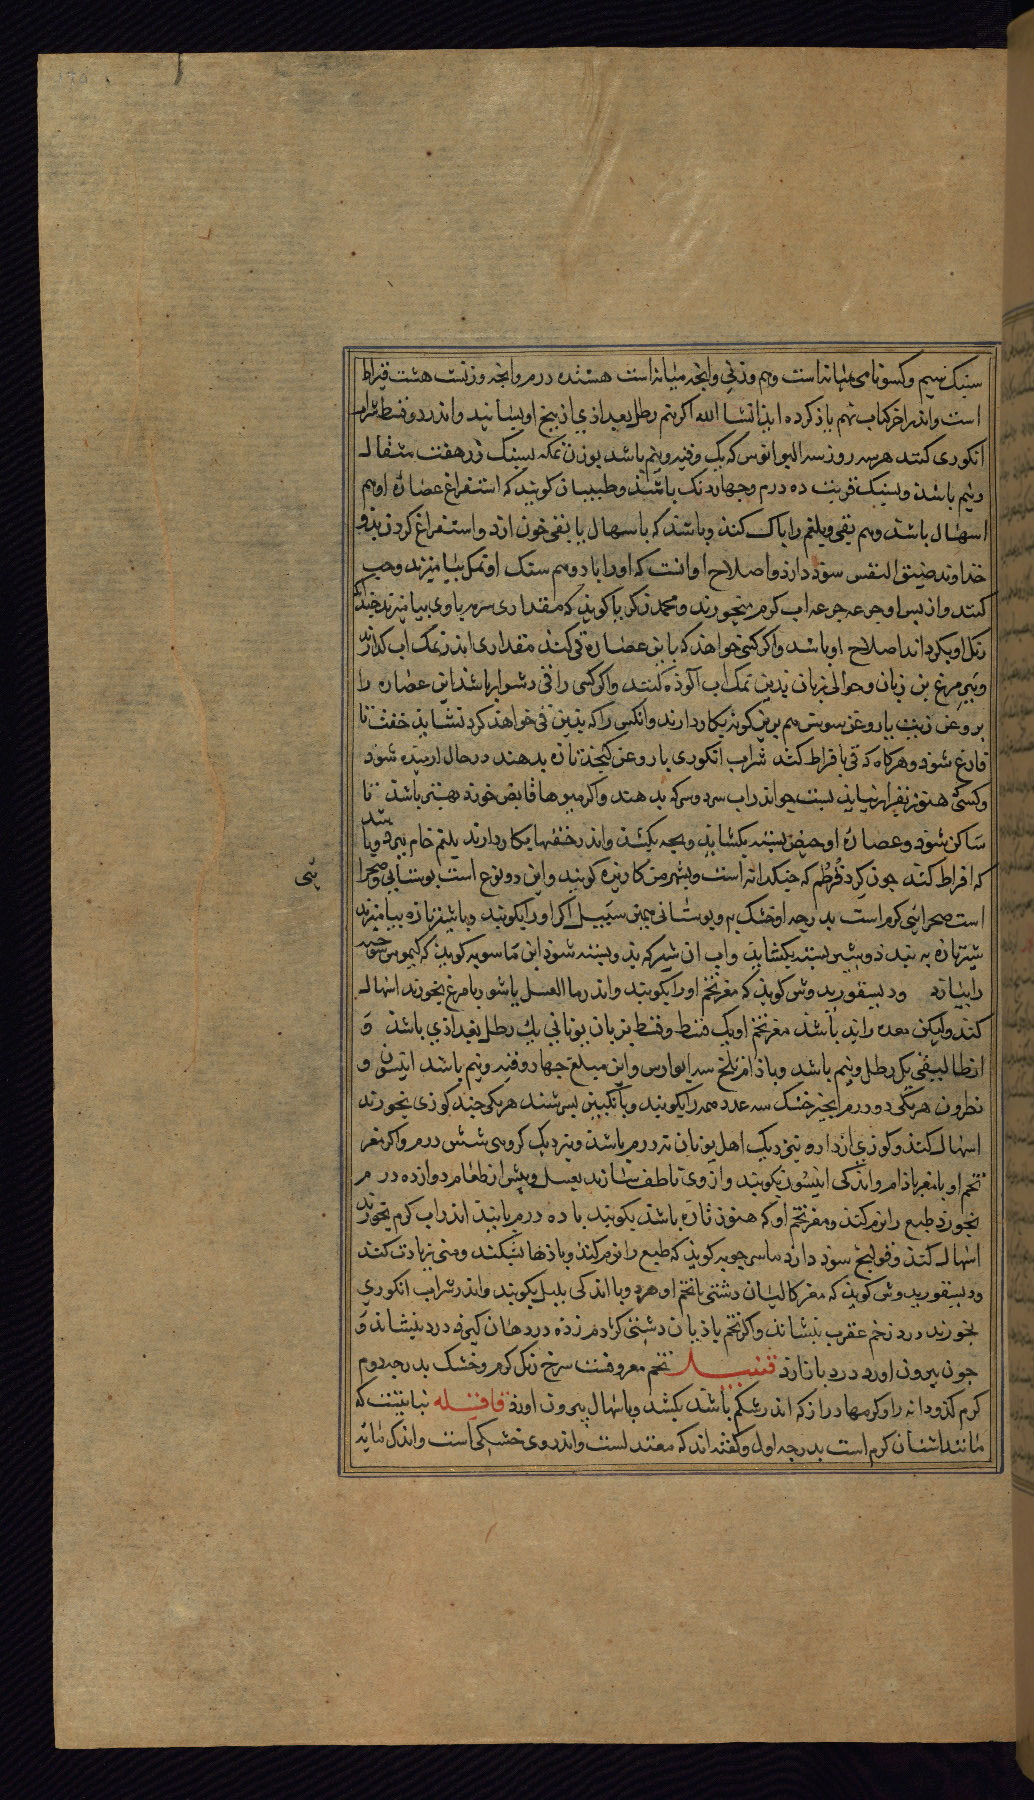 سنبک نهیم وکسوتامی میانه است وهم وزنی وانجه میانه است هشده درم وانجه وزنست هشت قیراط
است واندر اخر کتاب نهم یاذ کرده اید انشا الله اکر نیم رطل بغداذی از بیخ او بستانید واندر دو قسط شراب
انکوری کنند هر سه روز سه الیوانوس که یک وقیه ونیم باشد بوزن نمکه بسنک زر هفت مثقال
ونیم باشذ وبسنک قریب ده درم وجهار دنک باشذ وطبیبان کویند که استفراغ عصاره او هم
اسهال باشد وهم بقی وبلغم را پاک کند وباشذ که باسهال یا بقی خون ارد واستفراغ کردن بذو
خذاوند ضیق النفس سوذ دارذ واصلاح او انست که او را با دو هم سنک او نمک بیامیزند وحب
کنند واز پس او جرعه جرعه اب کرم میخورند ومحمد زکریا کویذ که مقداری سرمه با وی بیامیزند جندانک
رنک او بکرداند اصلاح او باشد واکر کسی خواهذ که باین عصاره قی کند مقداری اندر نمک اب کدازند
وبپر مرغ بن زبان وحوالی زبان بدین نمک اب آلوذه کنند واکر کسی را قی دشوار باشذ این عصاره را
بروغن زیت یا روغن سوسن هم برین کونه بکار دارند وانکس را که بدین قی خواهذ کرد نشاید خفت تا
فارغ شوذ وهرکاه که قی بافراط کند شراب انکوری با روغن کنجد تازه بدهند در حال ارمیده شوذ
وکسی هنوز نفرا
ساکن شوذ وعصاره او حیض بسته بکشاید وبجه بکشد واندر حقنها بکار دارند بلغم خام ببرد وباشد
که افراط کند جون کرد قرطم که خسکدانه است وبشهر من کازیره کویند واین دو نوع است بوستانی وصحرا
ئی
است صحرائی کرم است بدرجه او خشک به وبوستانی همین سبیل اکر او را بکوبند وباشیر تازه بیامیزند
شیر تازه به بندد وشیر بسته بکشاید واب ان شیر که بدو بسته شوذ ابن ماسویه کویذ که کیموس سوخته
را بیارد ودیسقوریدوس کویذ که مغز تخم او را بکوبند واندر ما العسل یا شوربا مرغ بخورند اسهال
کند ولیکن معده را بد باشذ مغز تخم او یک قسط وقسط بزبان یونانی یک رطل بغداذی باشذ و
انطالیقی یک رطل ونیم باشد وباذام تلخ سه ابولوس واین مبلغ جهار وقیه ونیم باشد انیسون و
نطرون هر یکی دو درم انجیر خشک سه عدد همه را بکوبند وبانکبین بسرشند هر یکی جند کوزی بخورند
اسهال کند وکوزی از دارو بنزدیک اهل یونان نه درم باشذ وبنزدیک کروهی شش درم واکر مغز
تخم او با مغز باذام واندکی انیسون بکوبند وازوی ناطف سازند بعسل وبیش از طعام دوازده درم
بخورد طبع را نرم کند ومغز تخم او که هنوز تازه باشذ بکوبند با ده درم پانید اندر اب کرم بخورند
اسهال کند وقولنج سوذ دارد ماسرجویه کویذ که طبع را نرم کند وباذها بشکند ومنی زیادت کند
ودیسقوریدوس کویذ که مغز کالیان دشتی با تخم او هر دو با اندکی بلبل بکوبند واندر شراب انکوری
بخورند درد زخم عقرب بنشاند واکر تخم یاذیان دشتی کژدم زده در دهان کیرد درد بنشاند و
جون بیرون اورد درد باز ارد قنبیل تخم معروفست سرخ رنک کرم وخشک بدرجه دوم
کرم کدودانه را وکرمها دراز که اندر شکم باشد بکشد وباسهال بیرون اورد قاقله نباتیست که
مانند اشنان کرم است بدرجه اول وکفته اند که معتدلست واندر وی خشکی است واندک مایه